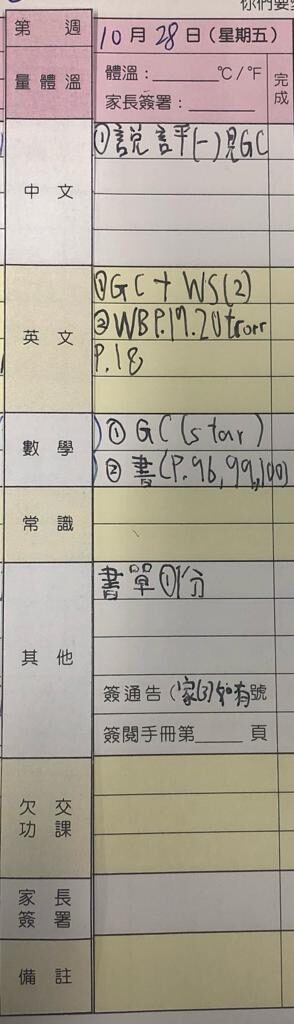 你們要
第 週
10月28日(星期五)
量體溫
體溫:______℃/℉
家長簽署:______
完成
中文
①說評(一)見GC
英文
①GC + WS(2)
②WBP.17.20+corr
P.18
數學
① GC(star)
② 書(P.96,99,100)
常識
其他
書單①份
簽通告(家(3)知有號
簽閱手冊第____頁
欠交
功課
家長
簽署
備註